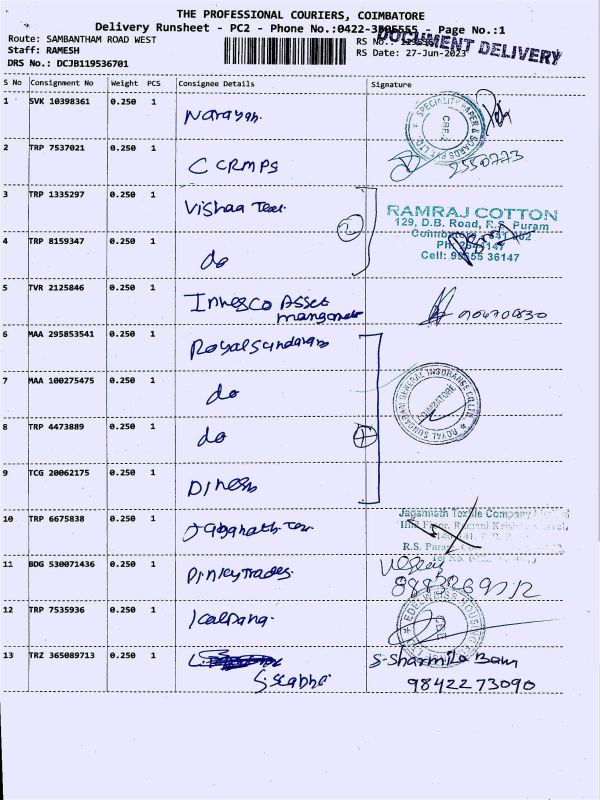 THE PROFESSIONAL COURIERS, COIMBATORE
Delivery Runsheet - PC2 - Phone No.:0422- - Page No.:1
DOCUMENT DELIVERY
Route: SAMBANTHAM ROAD WEST
RS No.:
Staff: RAMESH
RS Date: 27-Jun-2023
DRS No.: DCJB119536701
S No Consignment No Weight PCS Consignee Details Signature
1 SVK 10398361 0.250 1 Narayan.
SPECIALITY PAPER & BOARDS PVT. LTD.
CBE-2
2 TRP 7537021 0.250 1 C CRMPS 2550773
3 TRP 1335297 0.250 1 Vishaa Tex.
2
RAMRAJ COTTON
129, D.B. Road, R.S. Puram
Coimbatore - 641 002
Ph:
Cell: 36147
4 TRP 8159347 0.250 1 do
5 TVR 2125846 0.250 1 Invesco Asset
6 MAA 295853541 0.250 1 Royal Sundaram
7 MAA 100275475 0.250 1 do
ROYAL SUNDARAM GENERAL INSURANCE CO. LTD.
COIMBATORE
8 TRP 4473889 0.250 1 do
9 TCG 20062175 0.250 1 Dinesh
10 TRP 6675838 0.250 1 Jaganath Tex.
Jagannath Textile Company
R.S. Puram
11 BDG 530071436 0.250 1 Pinkey Trades.
12 TRP 7535936 0.250 1 Kalpana.
EDELWEISS HOUSING
13 TRZ 365089713 0.250 1
S. Sharmila Banu
9842273090